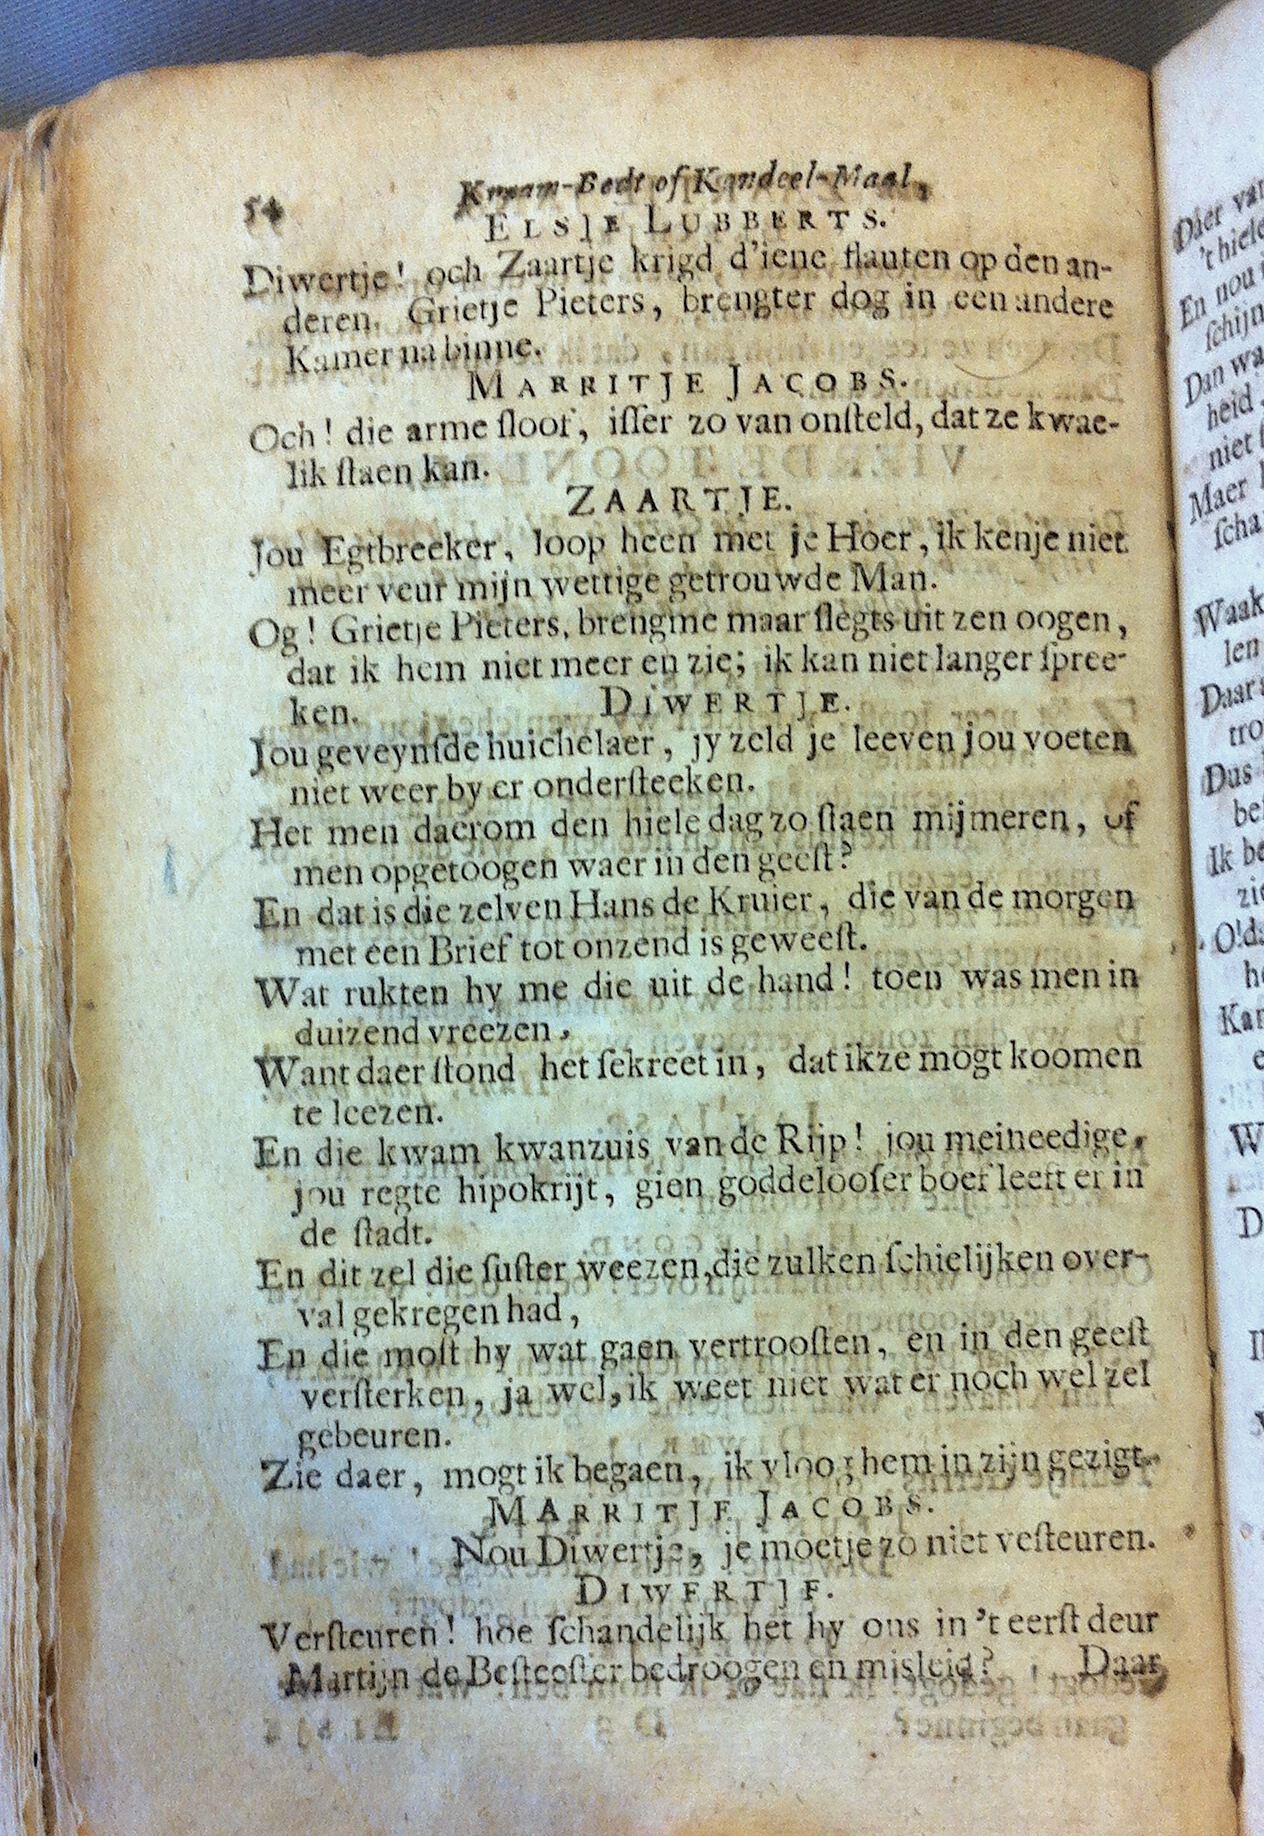 54 Kraam-Bedt of Kandeel-Maal,
ELSJE LUBBERTS.
Diwertje! och Zaartje krigd d'iene flauten op den an-
deren. Grietje Pieters, brengter dog in een andere
Kamer na binne.
MARRITJE JACOBS.
Och! die arme sloof, isser zo van onsteld, dat ze kwae-
lik staen kan.
ZAARTJE.
Jou Egtbreeker, loop heen met je Hoer, ik kenje niet
meer veur mijn wettige getrouwde Man.
Og! Grietje Pieters, brengme maar slegts uit zen oogen,
dat ik hem niet meer en zie; ik kan niet langer spree-
ken. DIWERTJE.
Jou geveynsde huichelaer, jy zeld je leeven jou voeten
niet weer by er ondersteeken.
Het men daerom den hiele dag zo staen mijmeren, of
men opgetoogen waer in den geest?
En dat is die zelven Hans de Kruier, die van de morgen
met een Brief tot onzend is geweest.
Wat rukten hy me die uit de hand! toen was men in
duizend vreezen,
Want daer stond het sekreet in, dat ik ze mogt koomen
te leezen.
En die kwam kwanzuis van de Rijp! jou meineedige,
jou regte hipokrijt, gien goddelooser boef leeft er in
de stadt.
En dit zel die suster weezen, die zulken schielijken over-
val gekregen had,
En die most hy wat gaen vertroosten, en in den geest
versterken, ja wel, ik weet niet wat er noch wel zel
gebeuren.
Zie daer, mogt ik begaen, ik vloog hem in zijn gezigt.
MARRITJE JACOBS.
Nou Diwertje, je moetje zo niet vesteuren.
DIWERTJE.
Versteuren! hoe schandelijk het hy ons in 't eerst deur
Martijn de Besteester bedroogen en misleid? Daar
Daer van
't hiele
En nou
schijn
Dan wa
heid
niet
Maer
scha
Waak
len
Daar
tro
Dus
be
Ik be
zie
O! da
he
Kan
e
W
D